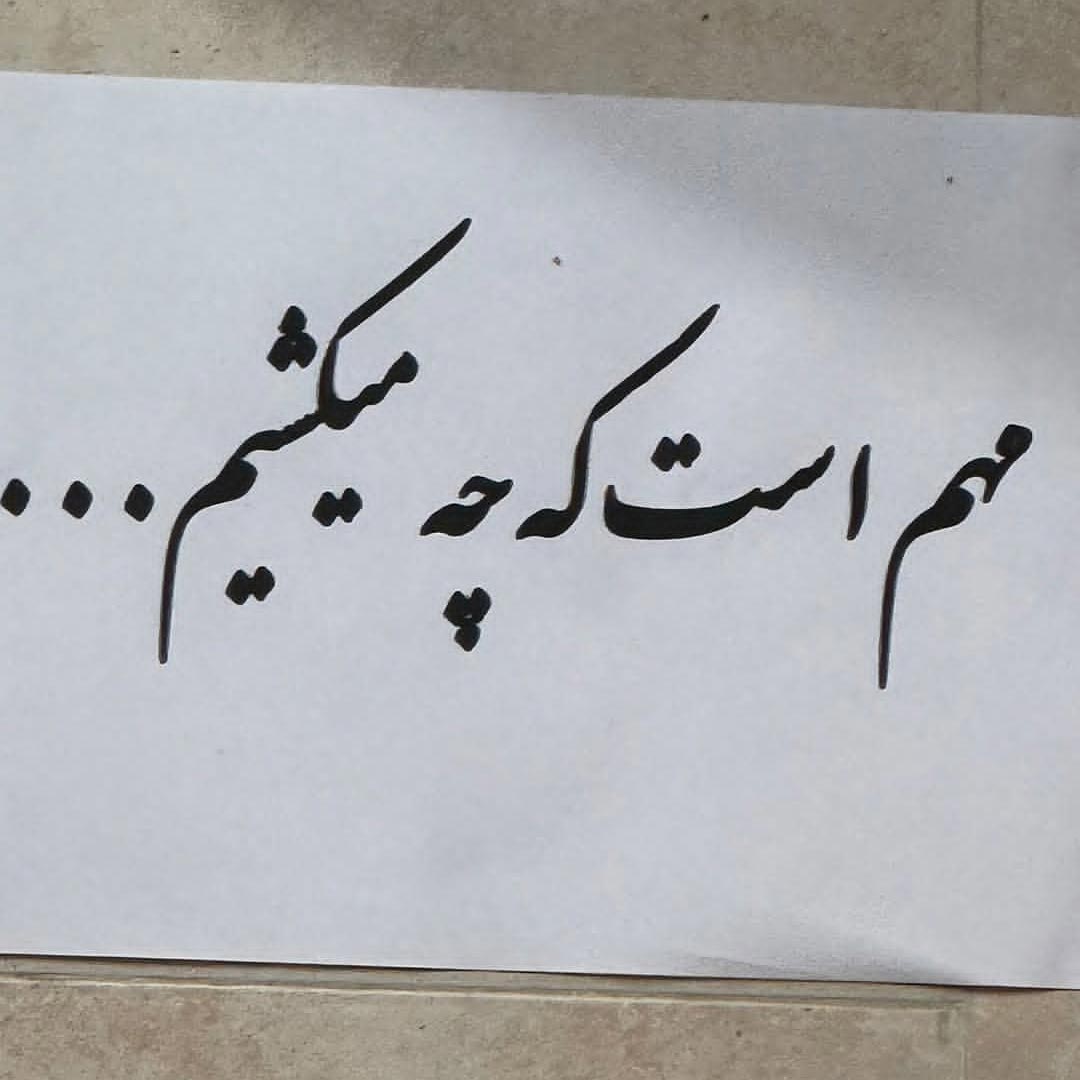 مهم است که چه میکشیم...